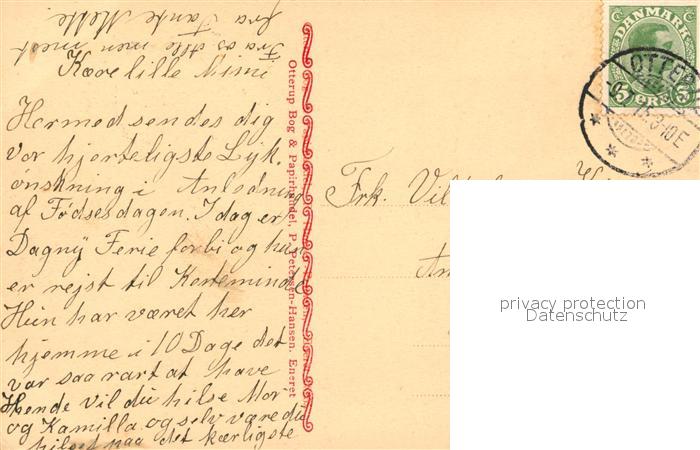 Kære lille Mimi
Hermed sendes dig
vor hjerteligste Lyk,
ønskning i Anledning
af Fødsesdagen. I dag er
Dagny Ferie forbi og hun
er rejst til Kerteminde
Hun har været her
hjemme i 10 Dage det
var saa rart at have
Hende vil du hilse Mor
og Kamilla og selv være du
hilset paa det kærligste
Fra os Alle men mest
fra Tante
Otterup Bog & Papirhandel, P. Petersen-Hansen. Eneret
Frk.
DANMARK
5 ØRE 5
OTTER
privacy protection
Datenschutz